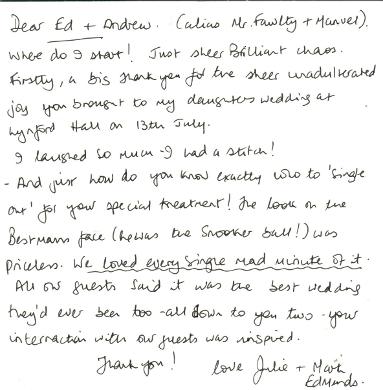 Dear Ed + Andrew. (alias Mr. Fawlty + Manuel).
Where do I start! Just sheer Brilliant chaos.
Firstly, a big thank you for the sheer unadulterated
joy you brought to my daughters wedding at
Lynford Hall on 13th July.
I laughed so much - I had a stitch!
- And just how do you know exactly who to 'single
out' for your special treatment! The look on the
Bestmans face (he was the Snooker ball!) was
Priceless. We loved every single mad minute of it.
All our guests said it was the best wedding
they'd ever been too - all down to you two - your
interraction with our guests was inspired.
Thank you! love Julie + Mark
Edmunds.